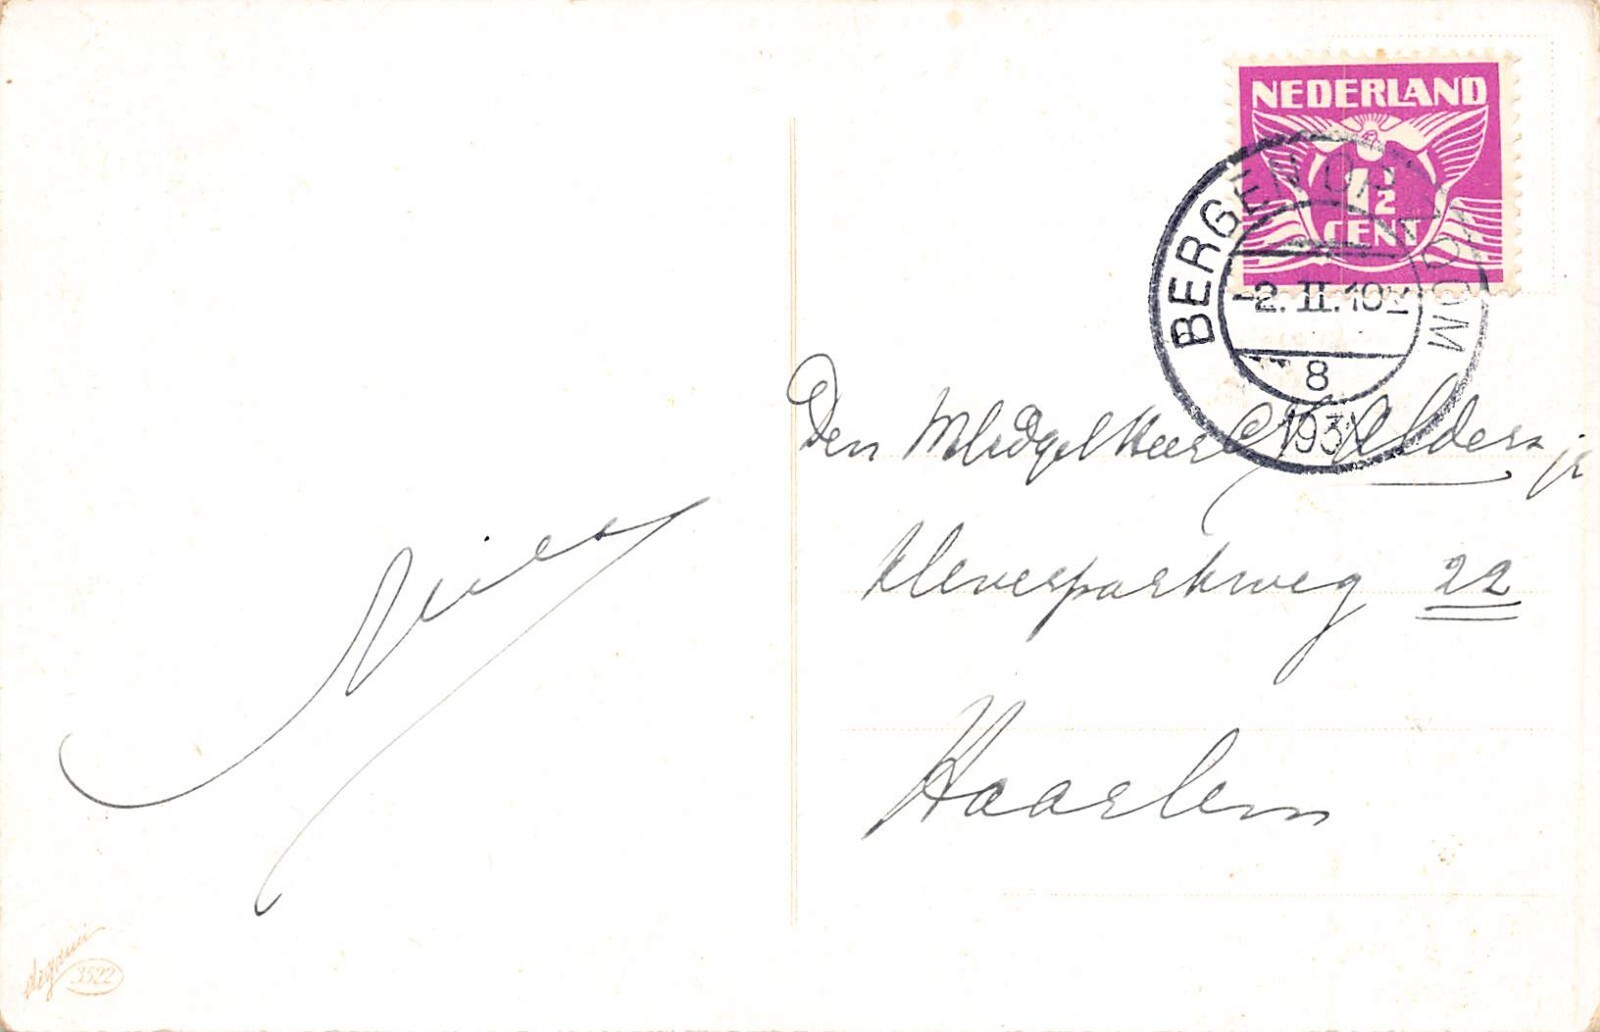 NEDERLAND
1½
CENT
BERGEN OP ZOOM
-2.II.10
8
193
Den WelEdGel Heer Alders jr
Kleverparkweg 22
Haarlem
Nies
degami
3522